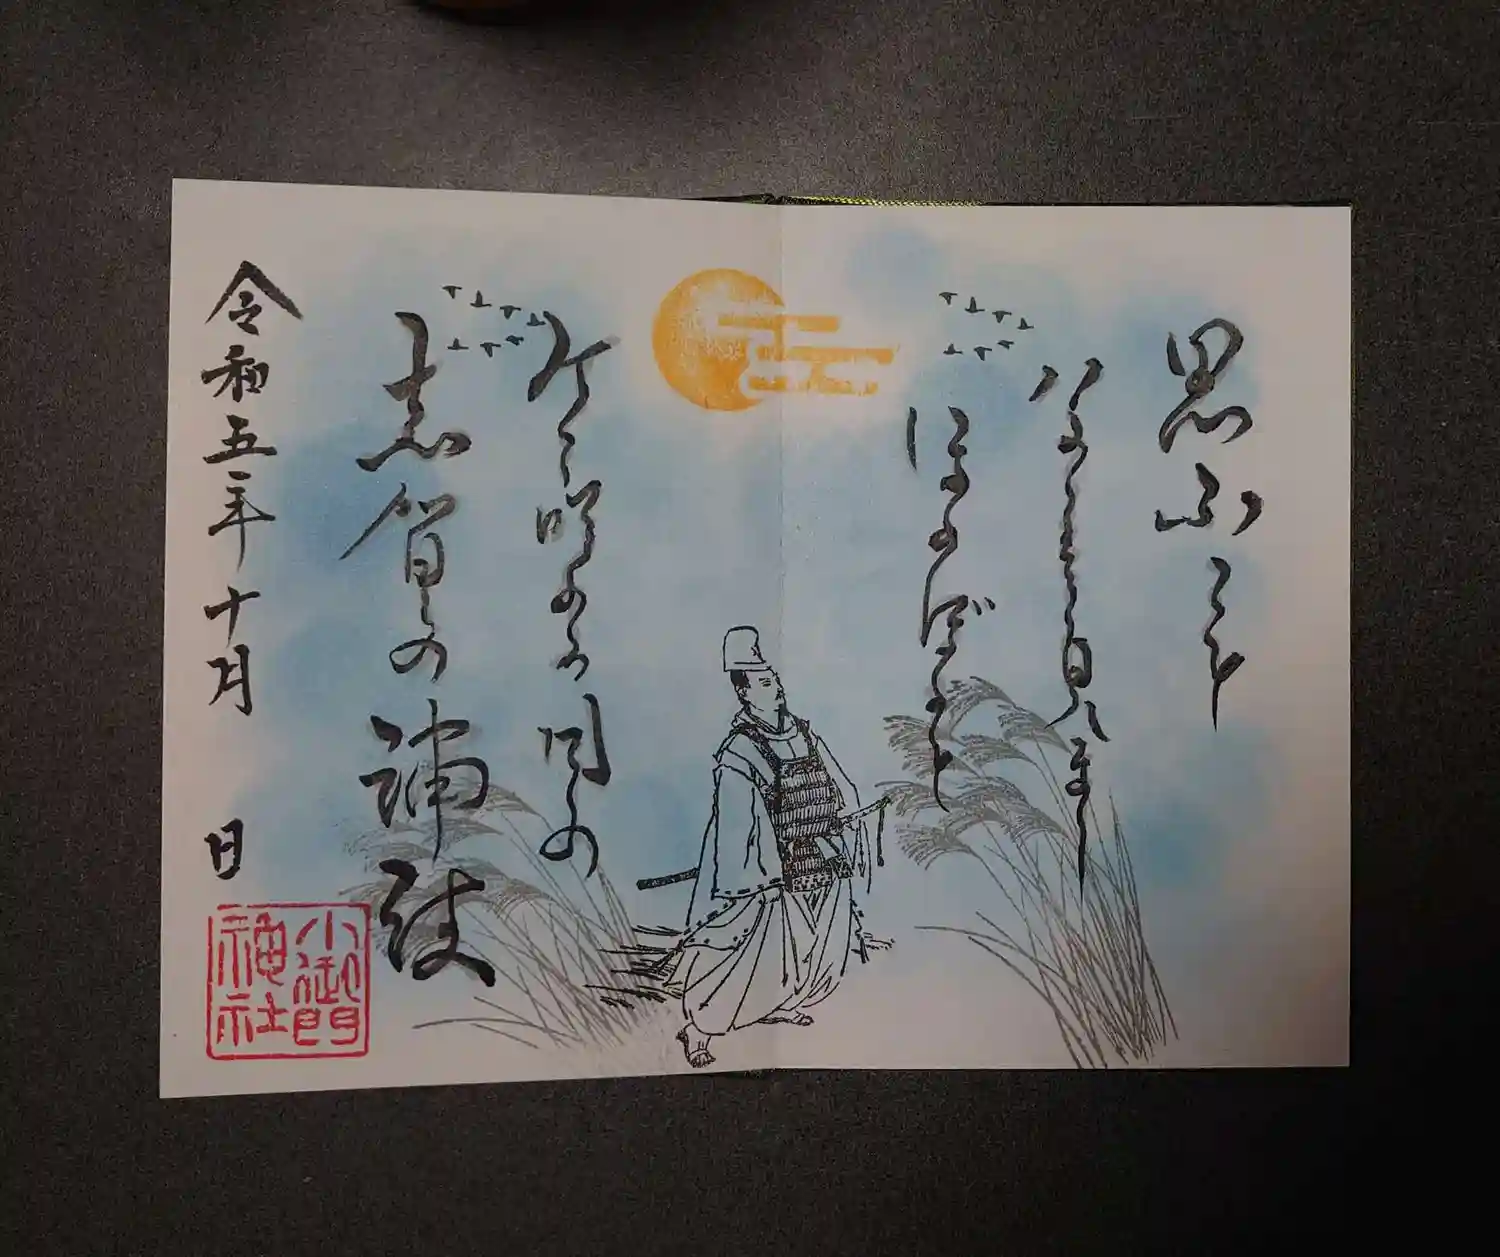 思ふこと
なくてぞ見まし
ほのぼのと
有明の月の
志賀の浦波
令和五年十月 日
小御門
神社